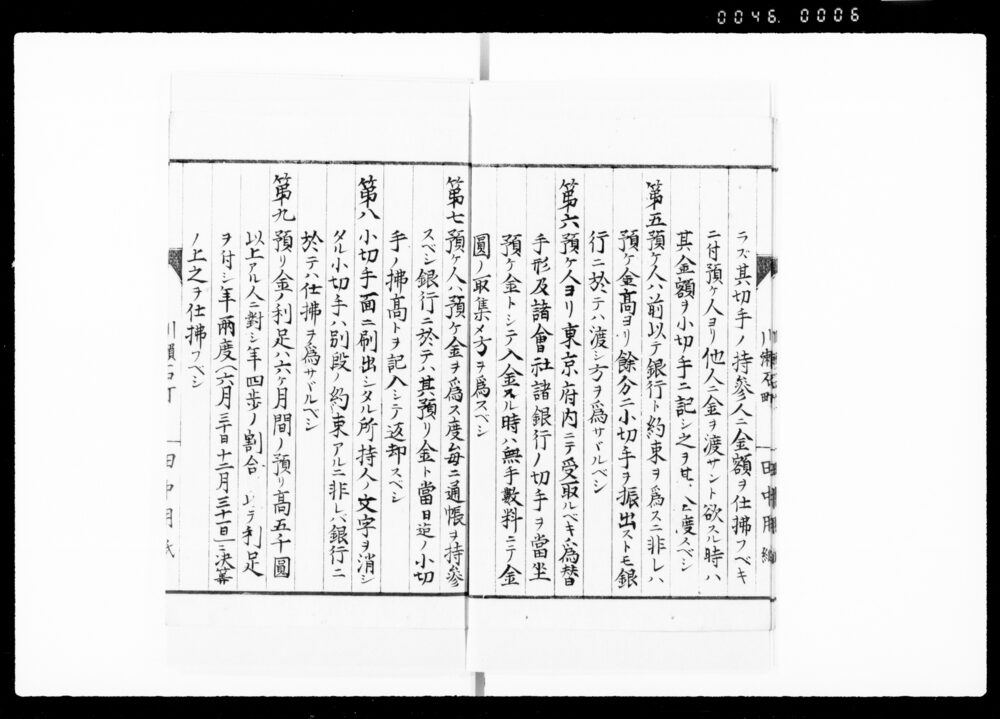 0046. 0006
ラズ其切手ノ持參人ニ金額ヲ仕拂フベキ
ニ付預ケ人ヨリ他人ニ金ヲ渡サント欲スル時ハ
其金額ヲ小切手ニ記シ之ヲ其人ニ渡スベシ
第五預ケ人ハ前以テ銀行ト約束ヲ爲スニ非レハ
預ケ金高ヨリ餘分ニ小切手ヲ振出ストモ銀
行ニ於テハ渡シ方ヲ爲サヾルベシ
第六預ケ人ヨリ東京府内ニテ受取ルベキ爲替
手形及諸會社諸銀行ノ切手ヲ當坐
預ケ金トシテ入金スル時ハ無手數料ニテ金
圓ノ取集メ方ヲ爲スベシ
第七預ケ人ハ預ケ金ヲ爲ス度每ニ通帳ヲ持參
スベシ銀行ニ於テハ其預リ金ト當日迠ノ小切
手ノ拂高トヲ記入シテ返却スベシ
第八小切手面ニ刷出シタル所持人ノ文字ヲ消シ
タル小切手ハ別段ノ約束アルニ非レバ銀行ニ
於テハ仕拂ヲ爲サヾルベシ
第九預リ金ノ利足ハ六ケ月間ノ預リ高五千圓
以上アル人ニ對シ年四歩ノ割合ヲ以テ利足
ヲ付シ年兩度(六月三十日十二月三十一日)ニ決算
ノ上之ヲ仕拂フベシ
川瀬石町
田中用